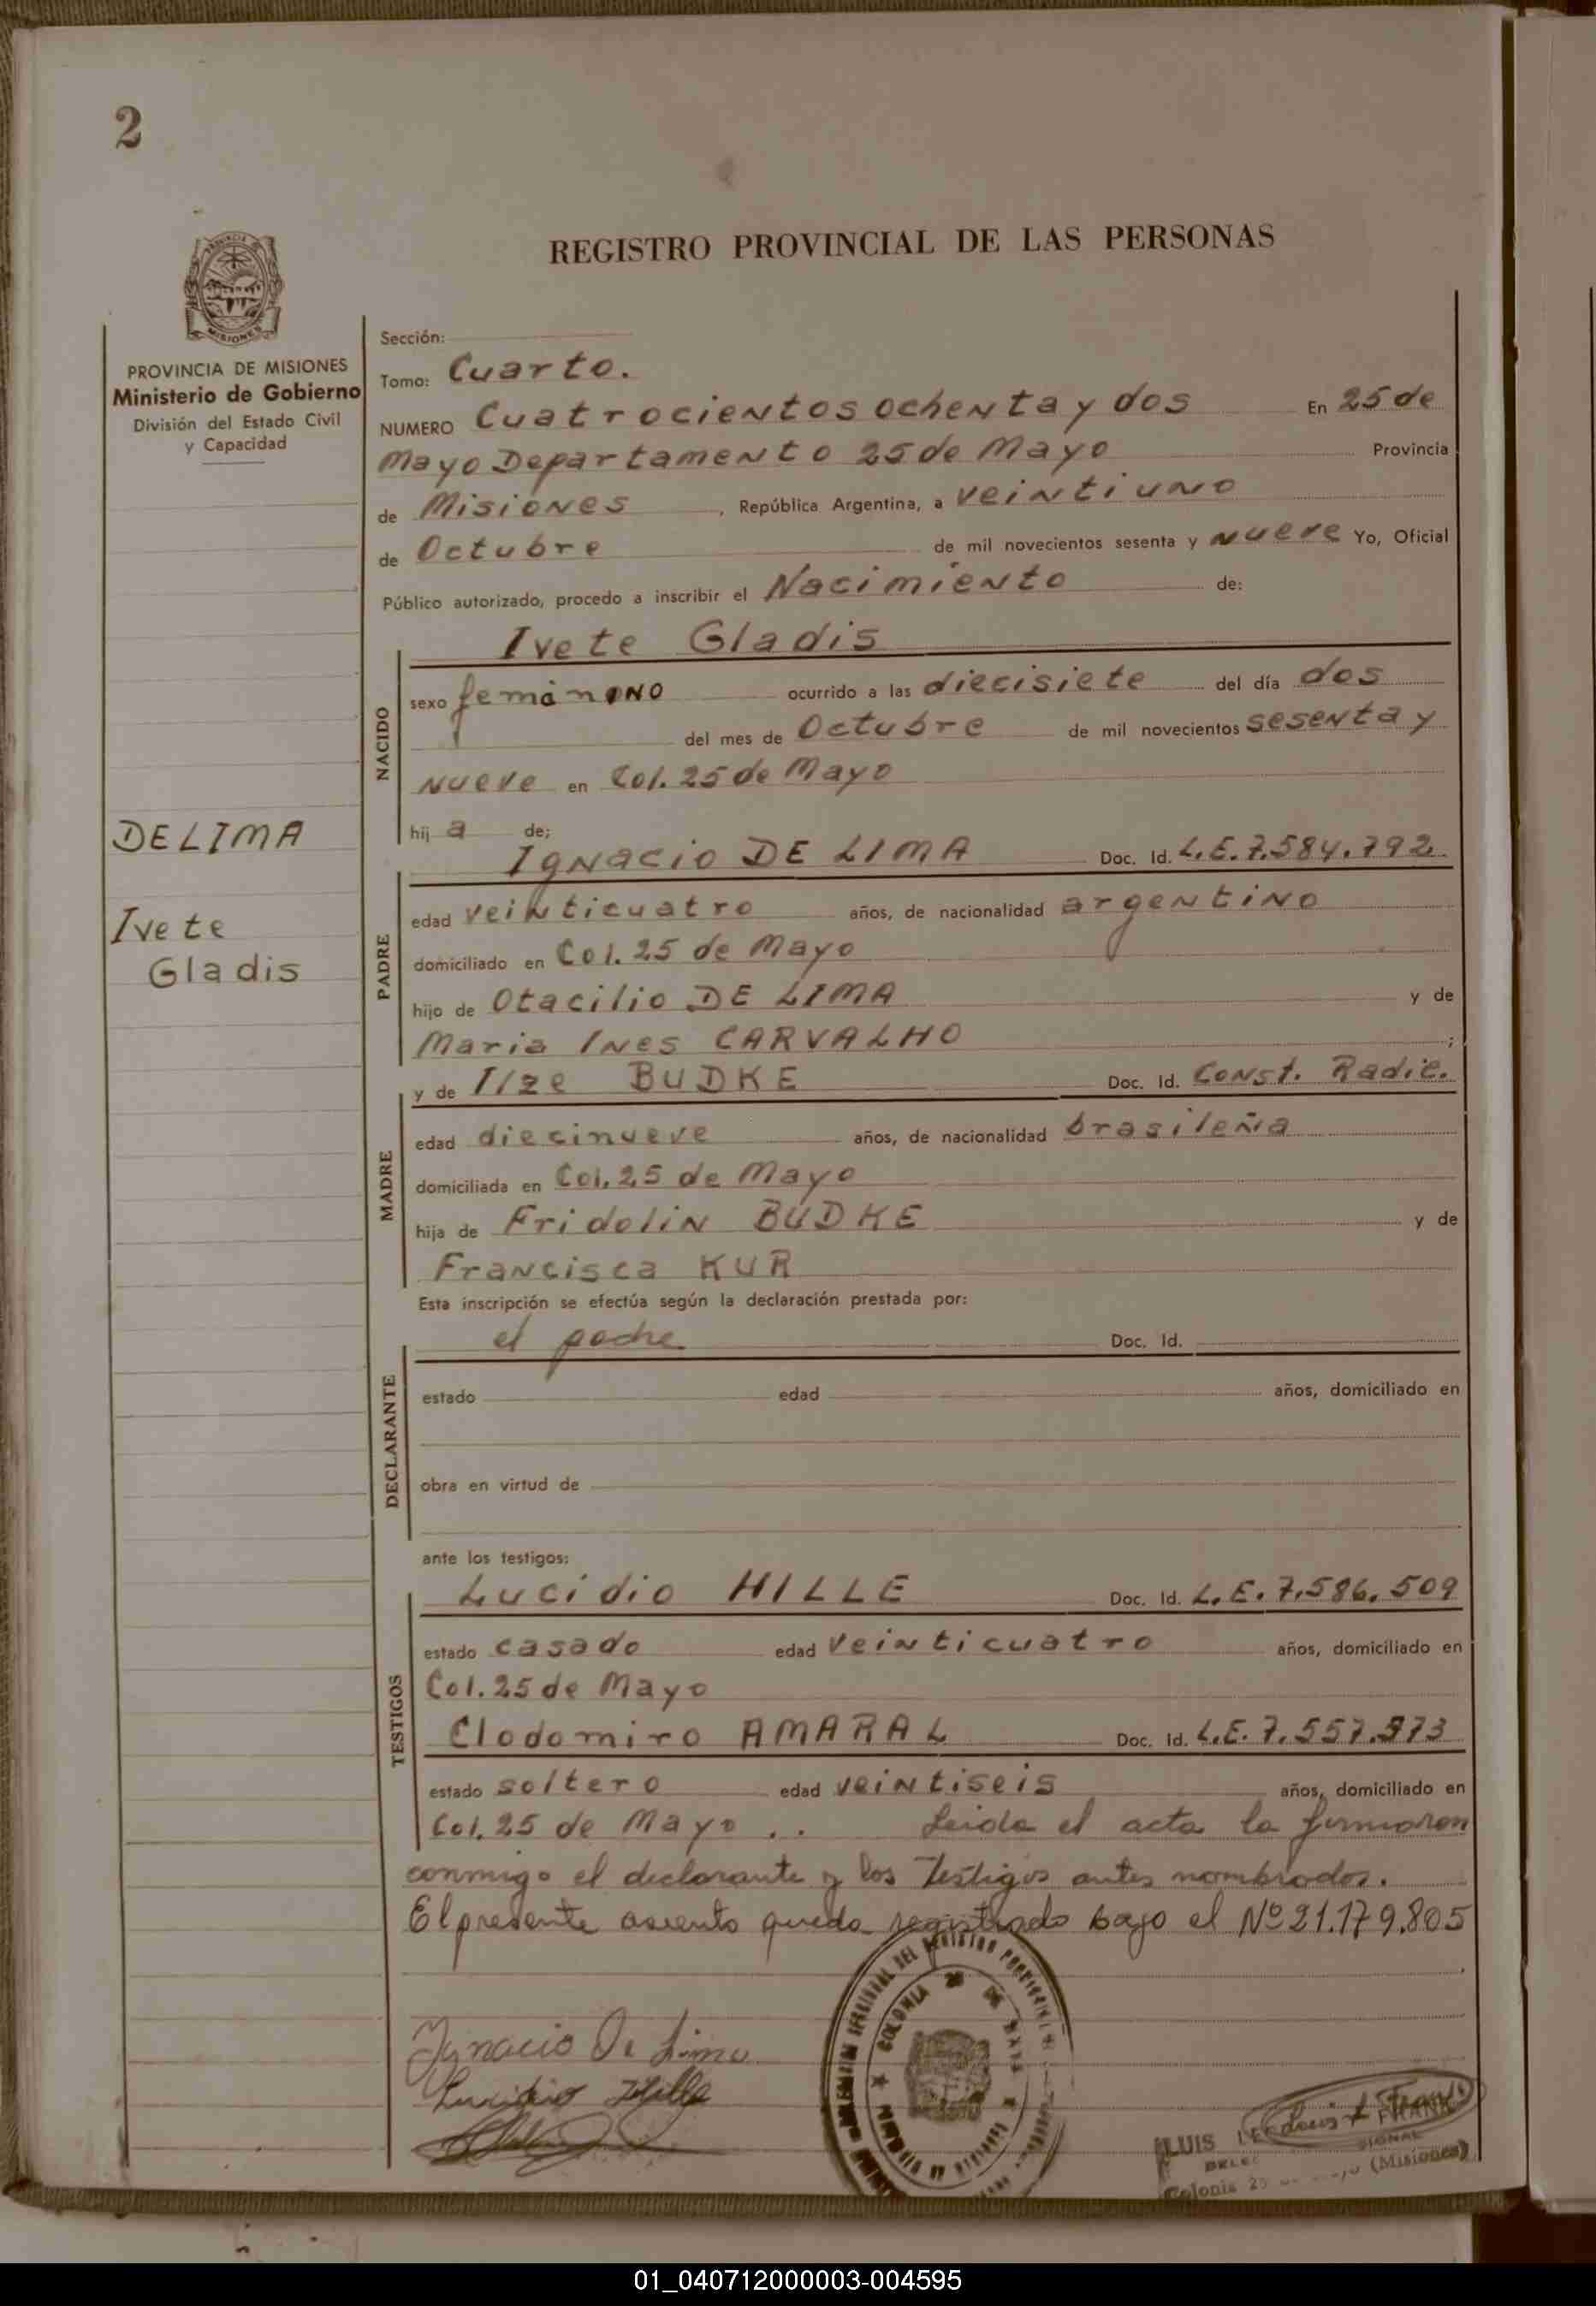 2
REGISTRO PROVINCIAL DE LAS PERSONAS
PROVINCIA DE MISIONES
Ministerio de Gobierno
División del Estado Civil
y Capacidad
DE LIMA
Ivete
Gladis
Sección:
Tomo: Cuarto.
NUMERO Cuatrocientos ochenta y dos En 25 de
Mayo Departamento 25 de Mayo Provincia
de Misiones, República Argentina, a veintiuno
de Octubre de mil novecientos sesenta y nueve Yo, Oficial
Público autorizado, procedo a inscribir el Nacimiento de:
NACIDO
Ivete Gladis
sexo femenino ocurrido a las diecisiete del día dos
del mes de Octubre de mil novecientos sesenta y
nueve en Col. 25 de Mayo
hij a de;
PADRE
Ignacio DE LIMA Doc. Id. L.E.7.584.792.
edad veinticuatro años, de nacionalidad argentino
domiciliado en Col. 25 de Mayo
hijo de Otacilio DE LIMA y de
Maria Ines CARVALHO ;
y de Ilze BUDKE Doc. Id. Const. Radic.
MADRE
edad diecinueve años, de nacionalidad brasileña
domiciliada en Col. 25 de Mayo
hija de Fridolin BUDKE y de
Francisca KUR
Esta inscripción se efectúa según la declaración prestada por:
el padre Doc. Id.
DECLARANTE
estado edad años, domiciliado en
obra en virtud de
ante los testigos:
TESTIGOS
Lucidio HILLE Doc. Id. L.E. 7.586.509
estado casado edad veinticuatro años, domiciliado en
Col. 25 de Mayo
Clodomiro AMARAL Doc. Id. L.E. 7.557.973
estado soltero edad veintiseis años, domiciliado en
Col. 25 de Mayo .. Leida el acta la firmaron
conmigo el declarante y los Testigos antes nombrados.
El presente asiento queda registrado bajo el Nº 21.179.805
Ignacio De Lima
Lucidio Hille
COLONIA 25 DE MAYO
LUIS FRANK
Colonia 25 (Misiones)
01_040712000003-004595